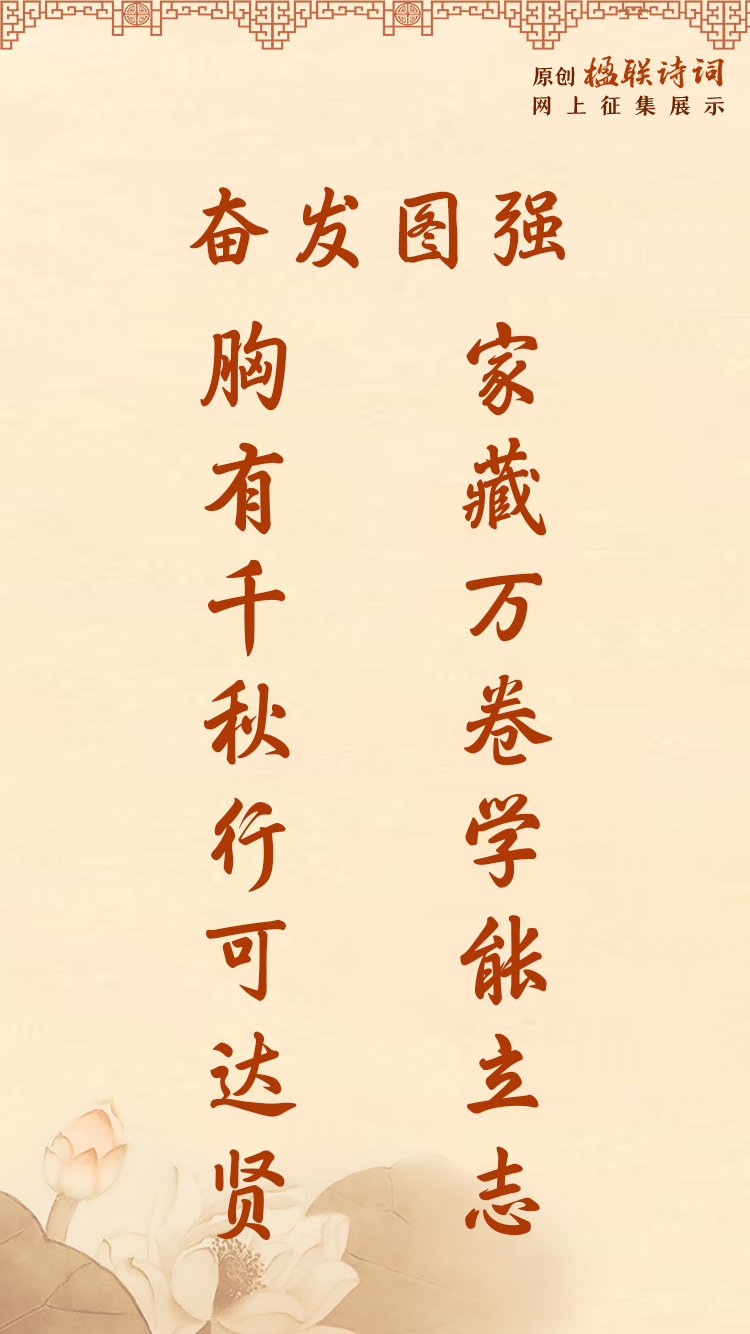 原创 楹联诗词
网上征集展示
奋发图强
家藏万卷学能立志
胸有千秋行可达贤